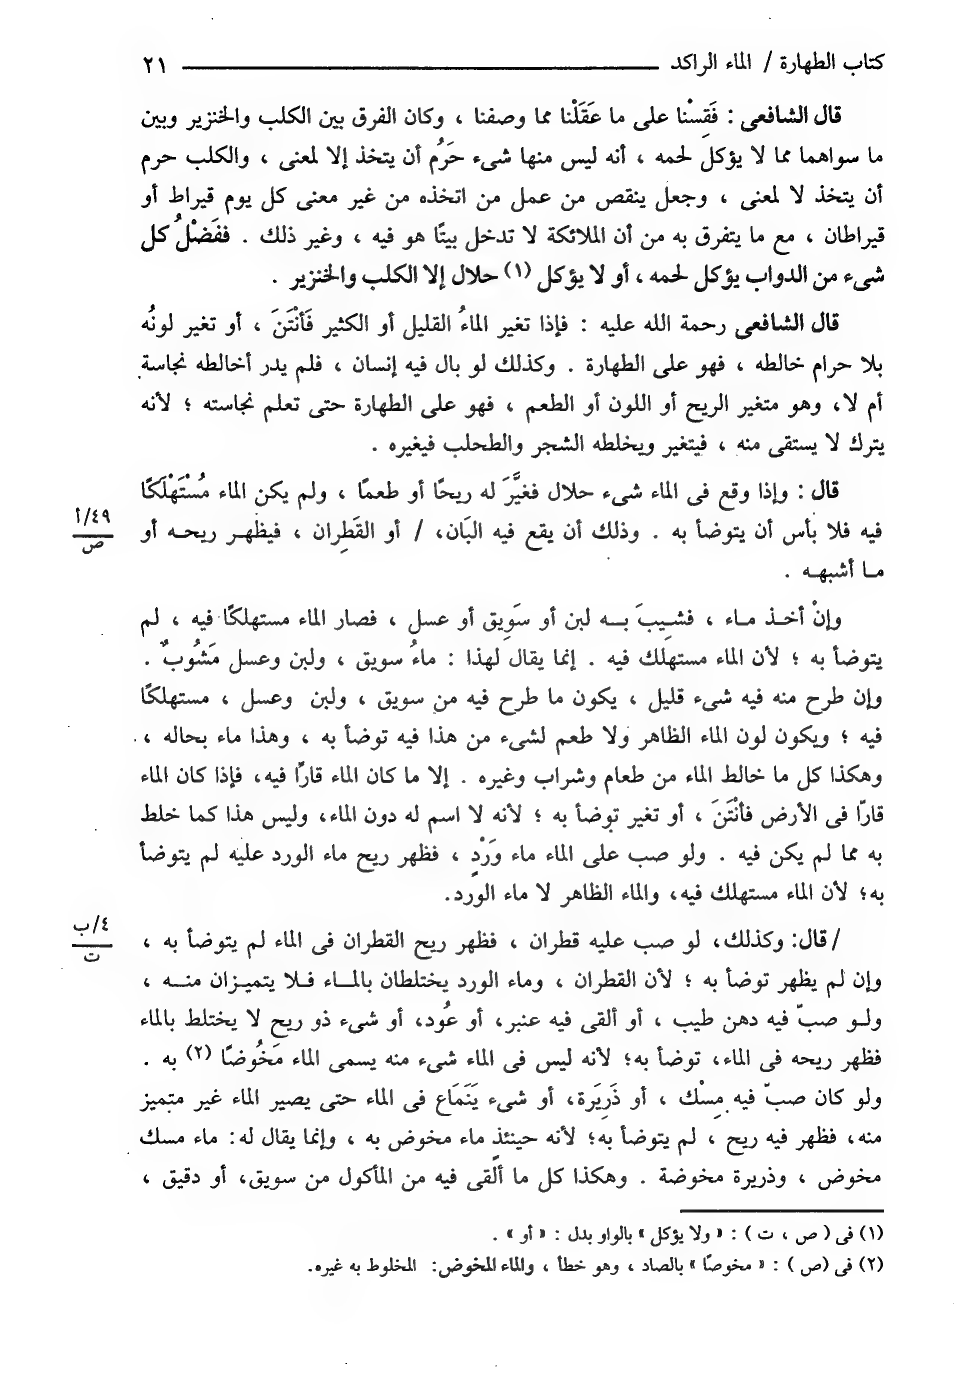 كتاب الطهارة / الماء الراكد ٢١
قال الشافعى : فَقِسْنا على ما عَقَلْنا مما وصفنا ، وكان الفرق بين الكلب والخنزير وبين
ما سواهما مما لا يؤكل لحمه ، أنه ليس منها شىء حَرُم أن يتخذ إلا لمعنى ، والكلب حرم
أن يتخذ لا لمعنى ، وجعل ينقص من عمل من اتخذه من غير معنى كل يوم قيراط أو
قيراطان ، مع ما يتفرق به من أن الملائكة لا تدخل بيتًا هو فيه ، وغير ذلك . ففَضْلُ كل
شىء من الدواب يؤكل لحمه ، أو لا يؤكل (١) حلال إلا الكلب والخنزير .
قال الشافعى رحمة الله عليه : فإذا تغير الماءُ القليل أو الكثير فَأَنْتَنَ ، أو تغير لونُه
بلا حرام خالطه ، فهو على الطهارة . وكذلك لو بال فيه إنسان ، فلم يدر أخالطه نجاسة
أم لا، وهو متغير الريح أو اللون أو الطعم ، فهو على الطهارة حتى تعلم نجاسته ؛ لأنه
يترك لا يستقى منه ، فيتغير ويخلطه الشجر والطحلب فيغيره .
قال : وإذا وقع فى الماء شىء حلال فغيَّرَ له ريحًا أو طعمًا ، ولم يكن الماء مُسْتَهْلَكًا
فيه فلا بأس أن يتوضأ به . وذلك أن يقع فيه البَان، / أو القَطِران ، فيظهر ريحه أو
٤٩/أ
ص
ما أشبهه .
وإنْ أخذ ماء ، فشِيبَ به لبن أو سَوِيق أو عسل ، فصار الماء مستهلكًا فيه ، لم
يتوضأ به ؛ لأن الماء مستهلك فيه . إنما يقال لهذا : ماءُ سويق ، ولبن وعسل مَشُوبٌ .
وإن طرح منه فيه شىء قليل ، يكون ما طرح فيه من سويق ، ولبن وعسل ، مستهلكًا
فيه ؛ ويكون لون الماء الظاهر ولا طعم لشىء من هذا فيه توضأ به ، وهذا ماء بحاله ،
وهكذا كل ما خالط الماء من طعام وشراب وغيره . إلا ما كان الماء قارًّا فيه، فإذا كان الماء
قارّا فى الأرض فأنْتَنَ ، أو تغير توضأ به ؛ لأنه لا اسم له دون الماء، وليس هذا كما خلط
به مما لم يكن فيه . ولو صب على الماء ماء وَرْدٍ ، فظهر ريح ماء الورد عليه لم يتوضأ
به؛ لأن الماء مستهلك فيه، والماء الظاهر لا ماء الورد.
/ قال: وكذلك، لو صب عليه قطران ، فظهر ريح القطران فى الماء لم يتوضأ به ،
٤/ب
ت
وإن لم يظهر توضأ به ؛ لأن القطران ، وماء الورد يختلطان بالماء فلا يتميزان منه ،
ولو صبّ فيه دهن طيب ، أو ألقى فيه عنبر، أو عُود، أو شىء ذو ريح لا يختلط بالماء
فظهر ريحه فى الماء، توضأ به؛ لأنه ليس فى الماء شىء منه يسمى الماء مَخُوضًا (٢) به .
ولو كان صبّ فيه مِسْك ، أو ذَرِيَرة، أو شىء يَنَمَاع فى الماء حتى يصير الماء غير متميز
منه، فظهر فيه ريح ، لم يتوضأ به؛ لأنه حينئذٍ ماء مخوض به ، وإنما يقال له: ماء مسك
مخوض ، وذريرة مخوضة . وهكذا كل ما ألقى فيه من المأكول من سويق، أو دقيق ،
(١) فى ( ص ، ت ) : « ولا يؤكل » بالواو بدل : « أو » .
(٢) فى (ص ) : « مخوصًا » بالصاد ، وهو خطأ ، والماء المخوض: المخلوط به غيره.